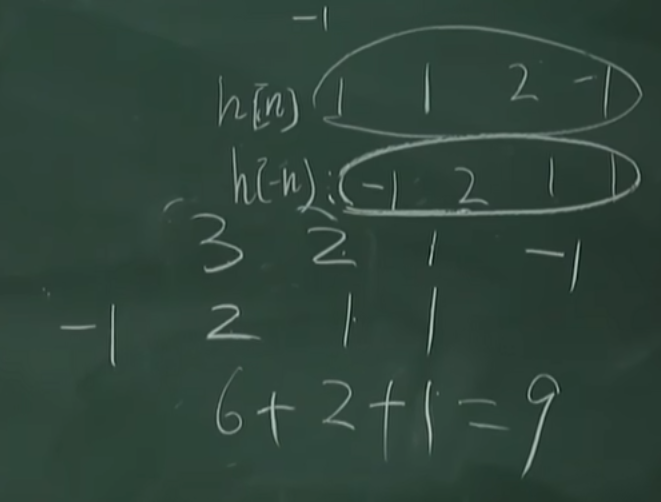 -1
h[n] 1 1 2 -1
h[-n]: -1 2 1 1
3 2 1 -1
-1 2 1 1
6+2+1=9